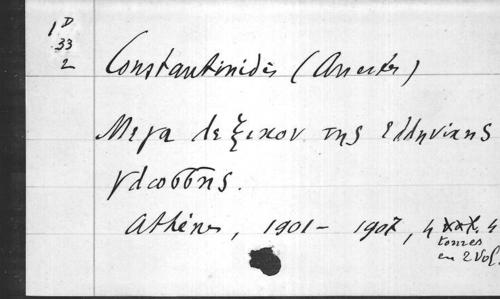 1D
33
2
Constantinidès (Anestes)
Μεγα λεξικον της ελληνικης
γλωσσης.
Athènes, 1901-1907, 4 4
tomes
en 2 Vol.